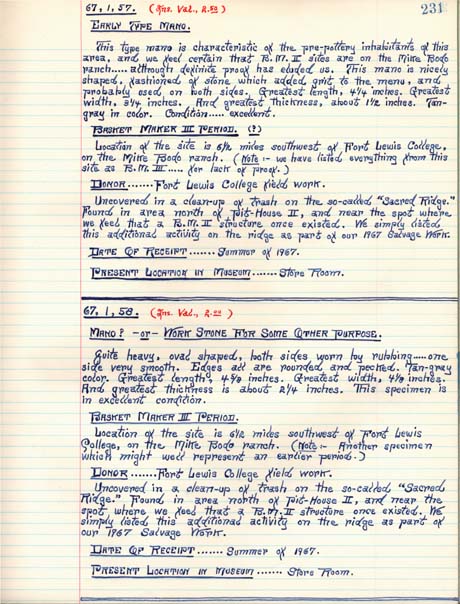 67,1,57. (Ins. Val., 2.50)
231
Early Type Mano.
This type mano is characteristic of the pre-pottery inhabitants of this
area, and we feel certain that B.M. II sites are on the Mike Bodo
ranch..... although definite proof has eluded us. This mano is nicely
shaped, fashioned of stone which added grit to the menu, and
probably used on both sides. Greatest length, 4¼ inches. Greatest
width, 3¾ inches. And greatest thickness, about 1½ inches. Tan-
gray in color. Condition..... excellent.
Basket Maker III Period. (?)
Location of the site is 6½ miles southwest of Fort Lewis College,
on the Mike Bodo ranch. (Note :- we have listed everything from this
site as B.M. III ..... for lack of proof.)
Donor....... Fort Lewis College field work.
Uncovered in a clean-up of trash on the so-called "Sacred Ridge."
Found in area north of Pit-House II, and near the spot where
we feel that a B.M. II structure once existed. We simply listed
this additional activity on the ridge as part of our 1967 Salvage Work.
Date Of Receipt ....... Summer of 1967.
Present Location in Museum ....... Store Room.
67,1,58. (Ins. Val., 2.00)
Mano? -or- Work Stone For Some Other Purpose.
Quite heavy, oval shaped, both sides worn by rubbing.....one
side very smooth. Edges all are rounded and pecked. Tan-gray
color. Greatest length, inches. Greatest width, inches.
And greatest thickness is about 2¼ inches. This specimen is
in excellent condition.
Basket Maker III Period.
Location of the site is 6½ miles southwest of Fort Lewis
College, on the Mike Bodo ranch. (Note :- Another specimen
which might well represent an earlier period.)
Donor.......Fort Lewis College field work.
Uncovered in a clean-up of trash on the so-called "Sacred
Ridge." Found in area north of Pit-House II, and near the
spot, where we feel that a B.M. II structure once existed. We
simply listed this additional activity on the ridge as part of
our 1967 Salvage Work.
Date Of Receipt ....... Summer of 1967.
Present Location in Museum ....... Store Room.